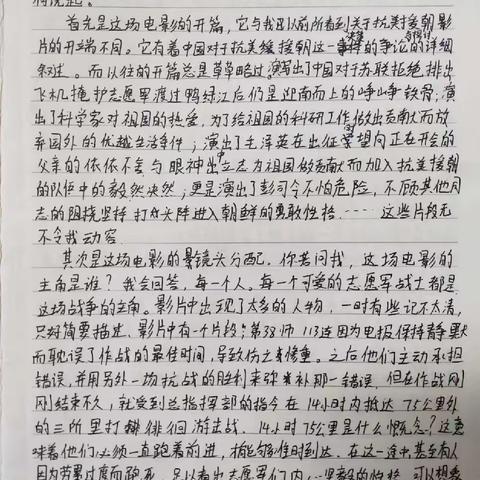 首先是这场电影的开篇，它与我以前所看到关于抗美援朝影
片的开端不同。它有着中国对于抗美援接朝这一决策的争论的详细
叙述。而以往的开篇总是草草略过，演写出了中国对于苏联拒绝排出
飞机掩护志愿军渡过鸭绿江后仍是迎南而上的峥峥铁骨；演
出了科学家对祖国的热爱，为了给祖国的科研工作做出贡献而放
弃国外的优越生活条件；演出了毛泽英在出征望向正在开会的
父亲的依依不舍与眼神中立志为祖国做贡献而加入抗美援朝
的队伍中的毅然决然；更是演出了彭司令不怕危险，不顾其他同
志的阻挠坚持打头阵进入朝鲜的勇敢性格……这些片段无
不令我动容
其次是这场电影的景镜头分配。你若问我，这场电影的
主角是谁？我会回答，每一个人。每一个可爱的志愿军战士都是
这场战争的主角。影片中出现了太多的人物，一时有些记不太清，
只好简要描述、影片中有一个片段；第38师113连因为电报保持静默
而耽误了作战的最佳时间，导致伤亡惨重。之后他们主动承担
错误，并用另外一场抗战的胜利来弥补那一错误，但在作战刚
刚结束不久，就受到总指挥部的指令在14小时内抵达75公里外
的三所里打徘徊游击战。14小时75公里是什么概念？这意
味着他们必须一直跑着前进，才能够准时到达。在这一途中甚至有人
因为劳累过度而跑死，足以看出志愿军们内